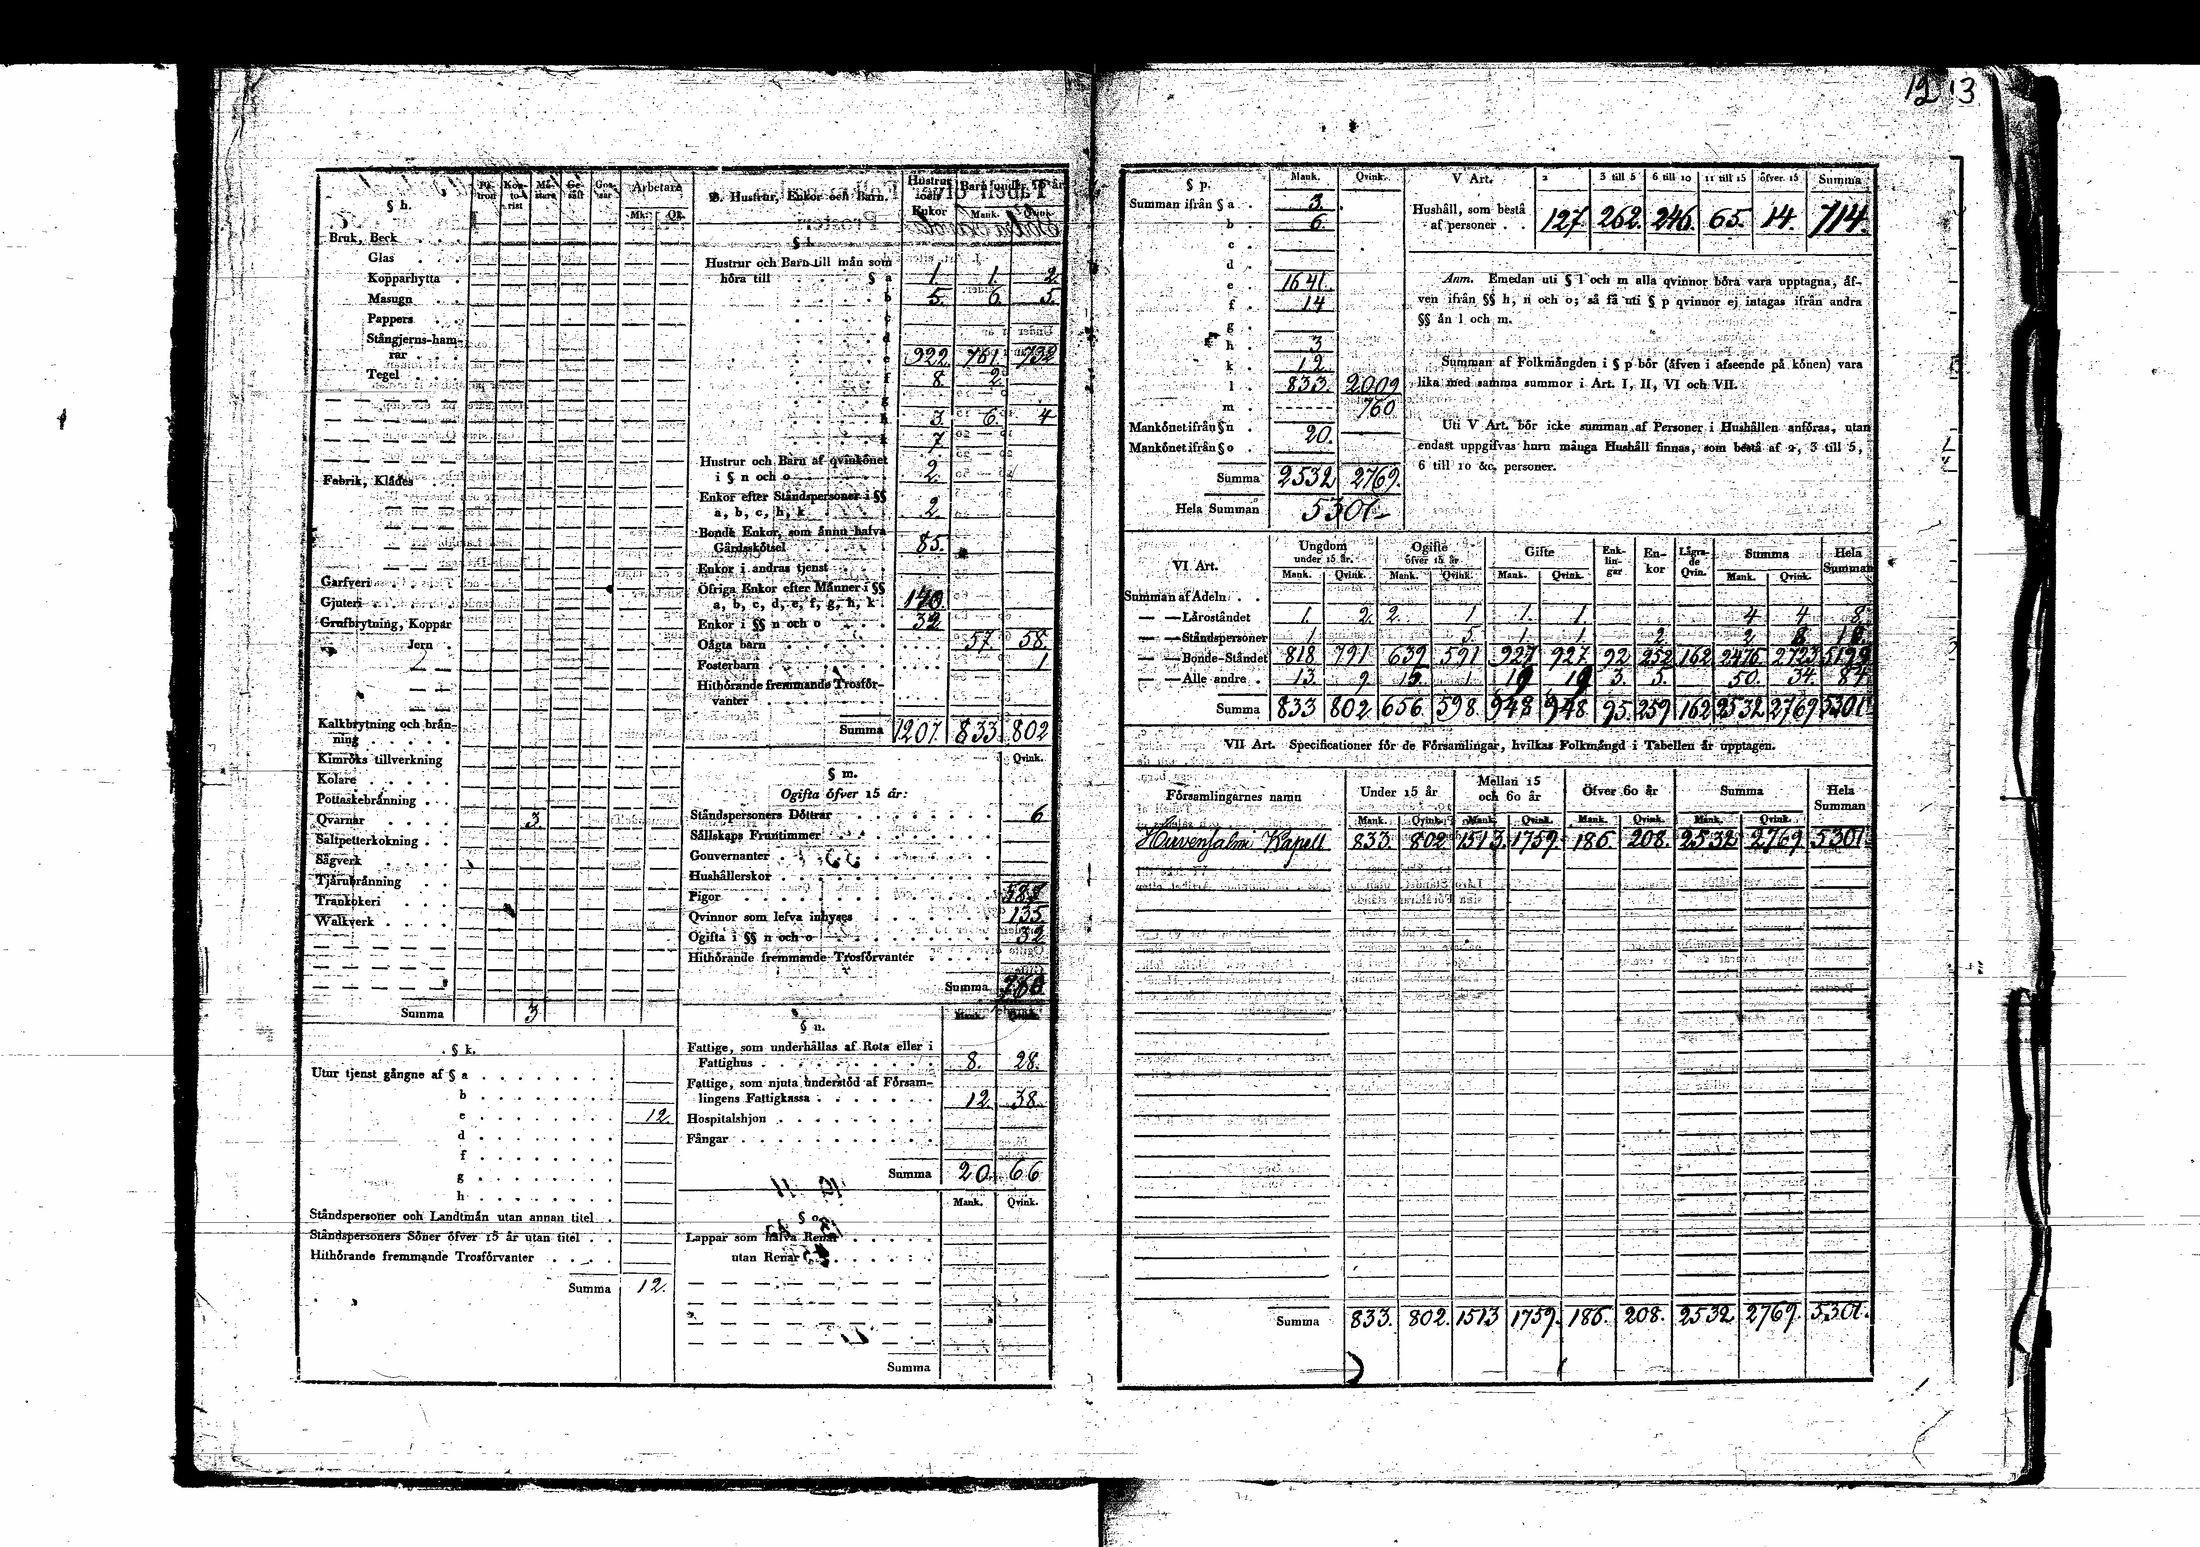 12 13
§ h.
Pa-tron Kon-to-rist Må-stare Ge-säll Gos-sar Arbetare
Mk: Qk.
Bruk, Beck . . .
Glas . . .
Kopparhytta .
Masugn . .
Pappers . .
Stångjerns-ham-
rar . . .
Tegel . . .
Fabrik, Klädes . .
Garfveri . . . .
Gjuteri . . . .
Grufbrytning, Koppar
Jern .
Kalkbrytning och brän-
ning . . . . .
Kimröks tillverkning
Kolare . . . .
Pottaskebränning . .
Qvarnar . . . . 3.
Saltpetterkokning . .
Sågverk . . . .
Tjärubränning . .
Trankokeri . . .
Walkverk . . . .
Summa 3
§ k.
Utur tjenst gångne af § a . . . . . . .
b . . . . . . .
e . . . . . . . 12.
d . . . . . . .
f . . . . . . .
g . . . . . . .
h . . . . . . .
Ståndspersoner och Landtmän utan annan titel .
Ståndspersoners Söner öfver 15 år utan titel . .
Hithörande fremmande Trosförvanter . . . .
Summa 12.
B. Hustrur, Enkor och Barn.
Hustrur och Enkor Barn under 15 år
Mank. Qvink.
§ l.
Hustrur och Barn till män som
höra till . . . . § a 1. 1. 2.
b 5. 6. 5.
c
d
e 922. 761. 732
f 8. 2.
g
h 3. 6. 4
k 7.
Hustrur och Barn af qvinkönet
i § n och o . . . . . 2.
Enkor efter Ståndspersoner i §§
a, b, c, h, k . . . . 2.
Bonde Enkor, som ännu hafva
Gårdsskötsel . . . . 85.
Enkor i andras tjenst . . .
Öfriga Enkor efter Männer i §§
a, b, c, d, e, f, g, h, k . 140.
Enkor i §§ n och o . . . 32
Oägta barn . . . . . . 57. 58.
Fosterbarn . . . . . . 1
Hithörande fremmande Trosför-
vanter . . . . . . .
Summa 1207. 833. 802
Qvink.
§ m.
Ogifta öfver 15 år:
Ståndspersoners Döttrar . . . . . . . 6
Sällskaps Fruntimmer . . . . . . . .
Gouvernanter . . . . . . . . . .
Hushållerskor . . . . . . . . . .
Pigor . . . . . . . . . . . .
Qvinnor som lefva inhyses . . . . . . 135.
Ogifta i §§ n och o . . . . . . . . 32
Hithörande fremmande Trosförvanter . . . .
Summa 760
Mank. Qvink.
§ n.
Fattige, som underhållas af Rota eller i
Fattighus . . . . . . . . . 8. 28.
Fattige, som njuta understöd af Försam-
lingens Fattigkassa . . . . . . . 12. 38.
Hospitalshjon . . . . . . . . .
Fångar . . . . . . . . . . .
Summa 20. 66
Mank. Qvink.
§ o.
Lappar som hafva Renar . . . . .
utan Renar . . . . . .
Summa
§ p. Mank. Qvink.
Summan ifrån § a . 3.
b . 6.
c .
d .
e . 1641.
f . 14
g .
h . 3
k . 12
l . 833. 2009
m . 760
Mankönet ifrån § n . 20.
Mankönet ifrån § o .
Summa 2532 2769.
Hela Summan 5301.
V Art. 2 3 till 5 6 till 10 11 till 15 öfver 15 Summa
Hushåll, som bestå
af personer . . 127. 262. 246. 65. 14. 714.
Anm. Emedan uti § l och m alla qvinnor böra vara upptagna, äf-
ven ifrån §§ h, n och o; så få uti § p qvinnor ej intagas ifrån andra
§§ än l och m.
Summan af Folkmängden i § p bör (äfven i afseende på könen) vara
lika med samma summor i Art. I, II, VI och VII.
Uti V Art. bör icke summan af Personer i Hushållen anföras, utan
endast uppgifvas huru många Hushåll finnas, som bestå af 2, 3 till 5,
6 till 10 &c. personer.
VI Art.
Ungdom under 15 år. Ogifte öfver 15 år Gifte Enk-lin-gar En-kor Lägra-de Qvin. Summa Hela Summan
Mank. Qvink. Mank. Qvink. Mank. Qvink. Mank. Qvink.
Summan af Adeln . .
— — Läroståndet 1. 2. 2. 1 1. 1. 4 4 8.
— — Ståndspersoner 1. 5. 1 1. 2. 2. 8. 10.
— — Bonde-Ståndet 818 791 639 591 927 927 92 252 162 2476 2723 5199
— — Alle andre . 13. 9 15. 1. 19 19 3. 5. 50. 34. 84.
Summa 833 802 656. 598. 948 948 95. 259 162 2532 2769 5301
VII Art. Specificationer för de Församlingar, hvilkas Folkmängd i Tabellen är upptagen.
Församlingarnes namn Under 15 år Mellan 15 och 60 år Öfver 60 år Summa Hela Summan
Mank. Qvink. Mank. Qvink. Mank. Qvink. Mank. Qvink.
Hirvensalmi Kapell 833. 802 1513. 1759. 186. 208. 2532 2769 5301.
Summa 833. 802. 1513 1759. 186. 208. 2532 2769. 5301.